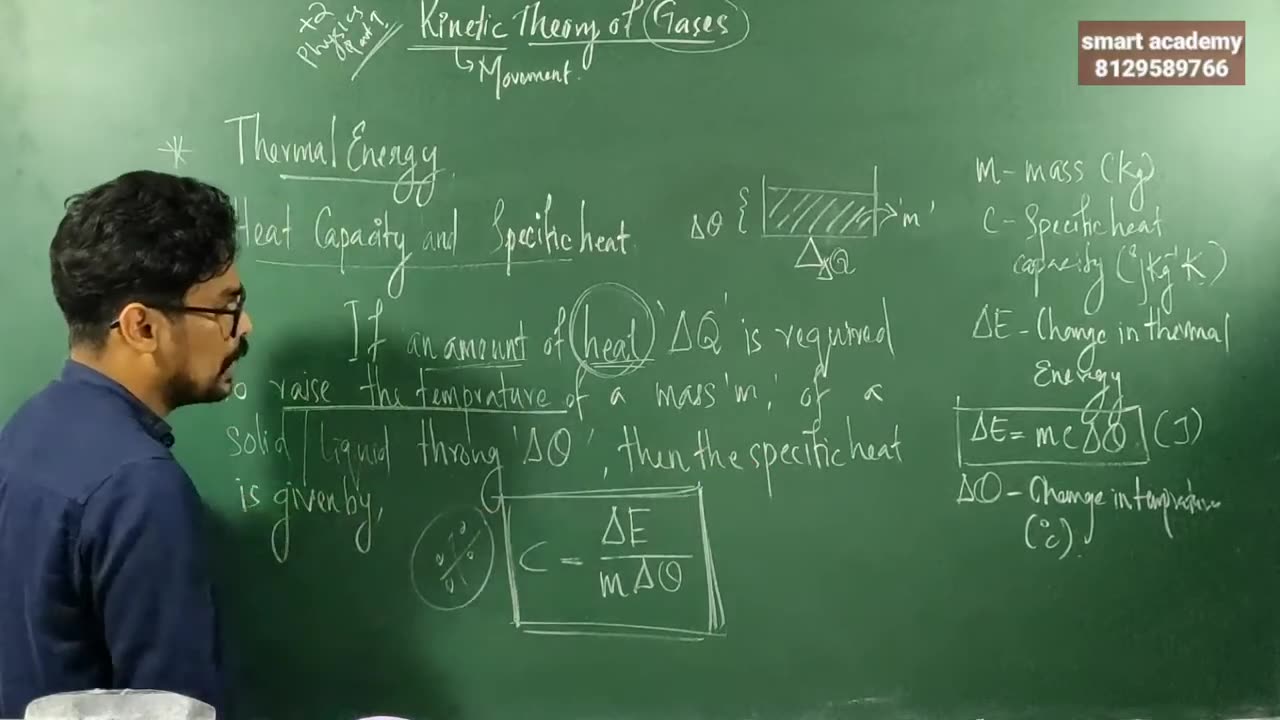 +2
Physics
Kinetic Theory of Gases
Movement.
smart academy
8129589766
* Thermal Energy.
Heat Capacity and Specific heat
If an amount of heat 'ΔQ' is required
to raise the temprature of a mass 'm', of a
solid / liquid throng 'Δθ', then the specific heat
is given by,
C = ΔE / mΔθ
Δθ { 'm'
ΔQ
m - mass (kg)
C - Specific heat
capacity
ΔE - Change in thermal
Energy
ΔE = mcΔθ (J)
Δθ - Change in temprature
(°c).